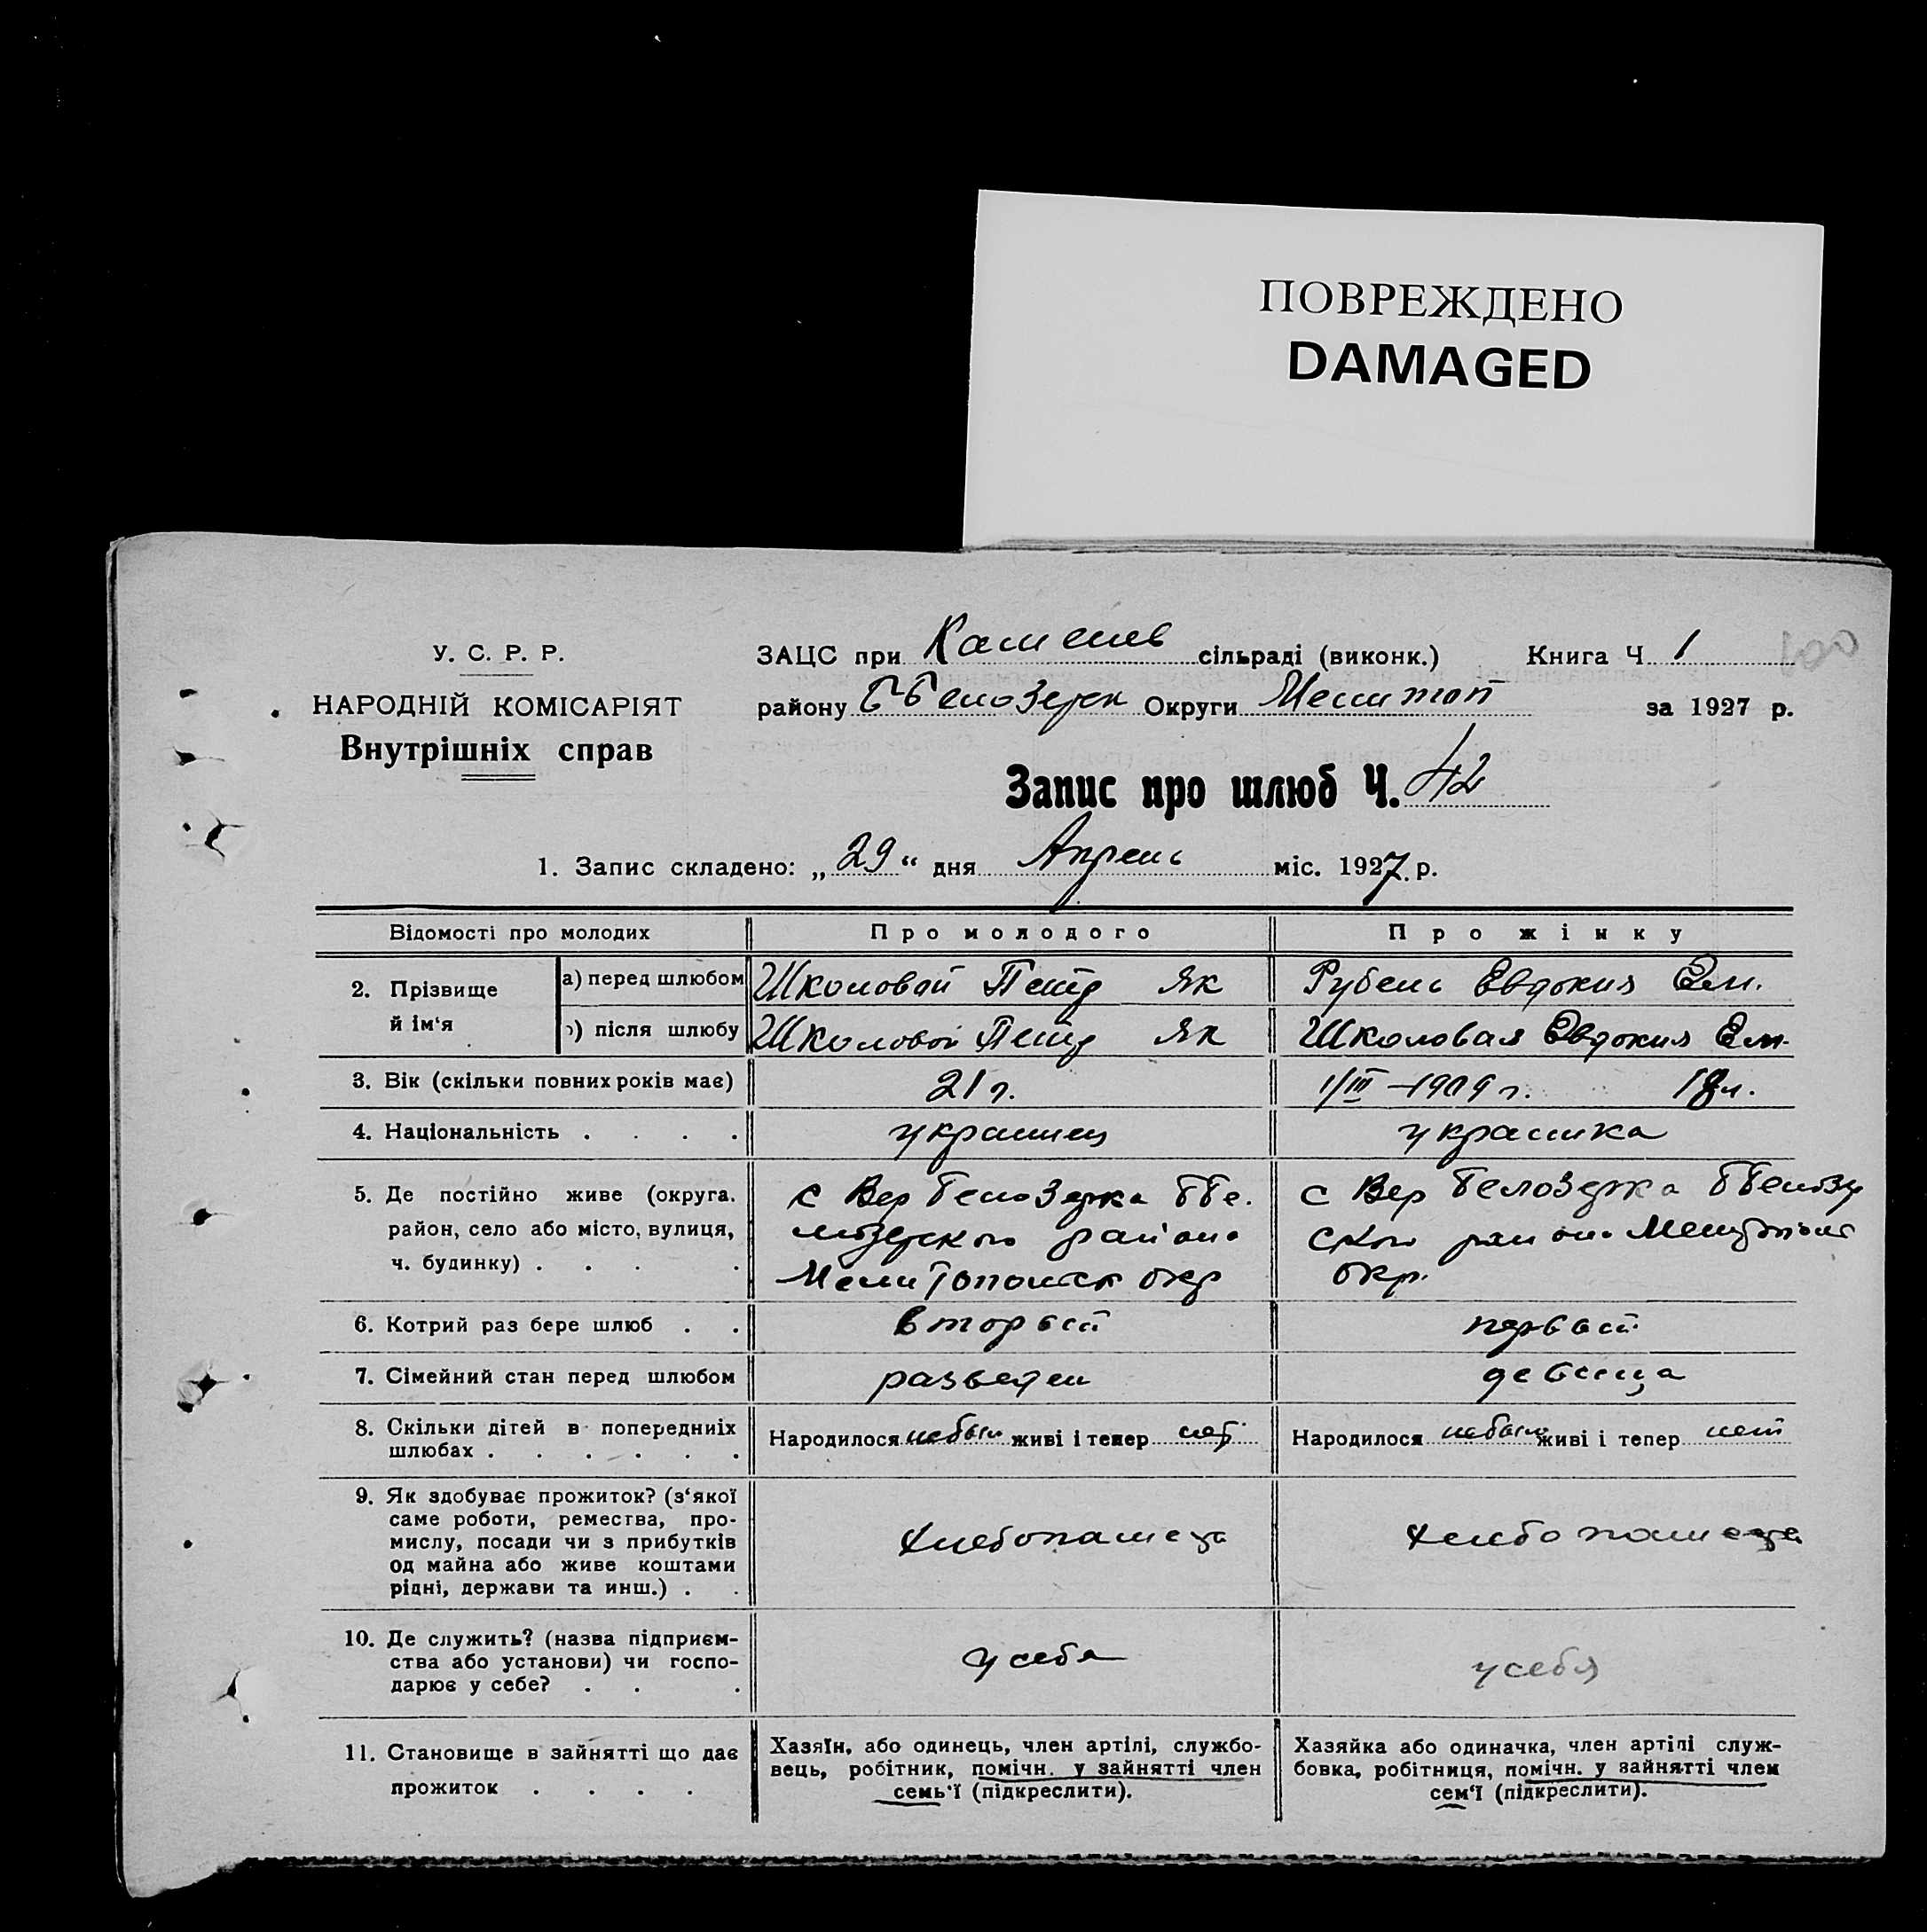 ПОВРЕЖДЕНО
DAMAGED
У. С. Р. Р.
НАРОДНІЙ КОМІСАРІЯТ
Внутрішніх справ
ЗАЦС при сільраді (виконк.) Книга Ч 1 100
району ББелозерск Округи Мелитоп за 1927 р.
Запис про шлюб Ч. 42
1. Запис складено: „29“ дня Апрель міс. 1927. р.
Відомості про молодих Про молодого Про жінку
2. Прізвище й ім‘я а) перед шлюбом Школовой Петр Як Рубель Евдокия Ем.
б) після шлюбу Школовой Петр Як Школовая Евдокия Ем.
3. Вік (скільки повних років має) 21 г. 1/III –1909 г. 18 л.
4. Національність . . . . украинец украинка
5. Де постійно живе (округа, район, село або місто, вулиця, ч. будинку) . . . .
с Вер Белозерка ББе.
лозерского района
Мелитопольск окр
с Вер Белозерка ББелозер
ского района Мелитопольс
окр.
6. Котрий раз бере шлюб . . второй первый
7. Сімейний стан перед шлюбом разведен девица
8. Скільки дітей в попередниіх шлюбах . . . . . .
Народилося небыло живі і тепер нет
Народилося небыло живі і тепер нет
9. Як здобуває прожиток? (з‘якої
саме роботи, ремества, про-
мислу, посади чи з прибутків
од майна або живе коштами
рідні, держави та инш.) . .
хлебопашец
хлебопашец
10. Де служить? (назва підприєм-
ства або установи) чи госпо-
дарює у себе? . . .
у себя
у себя
11. Становище в зайнятті що дає
прожиток . . . .
Хазяїн, або одинець, член артілі, службо-
вець, робітник, помічн. у зайнятті член
семь‘ї (підкреслити).
Хазяйка або одиначка, член артілі служ-
бовка, робітниця, помічн. у зайнятті член
сем‘ї (підкреслити).